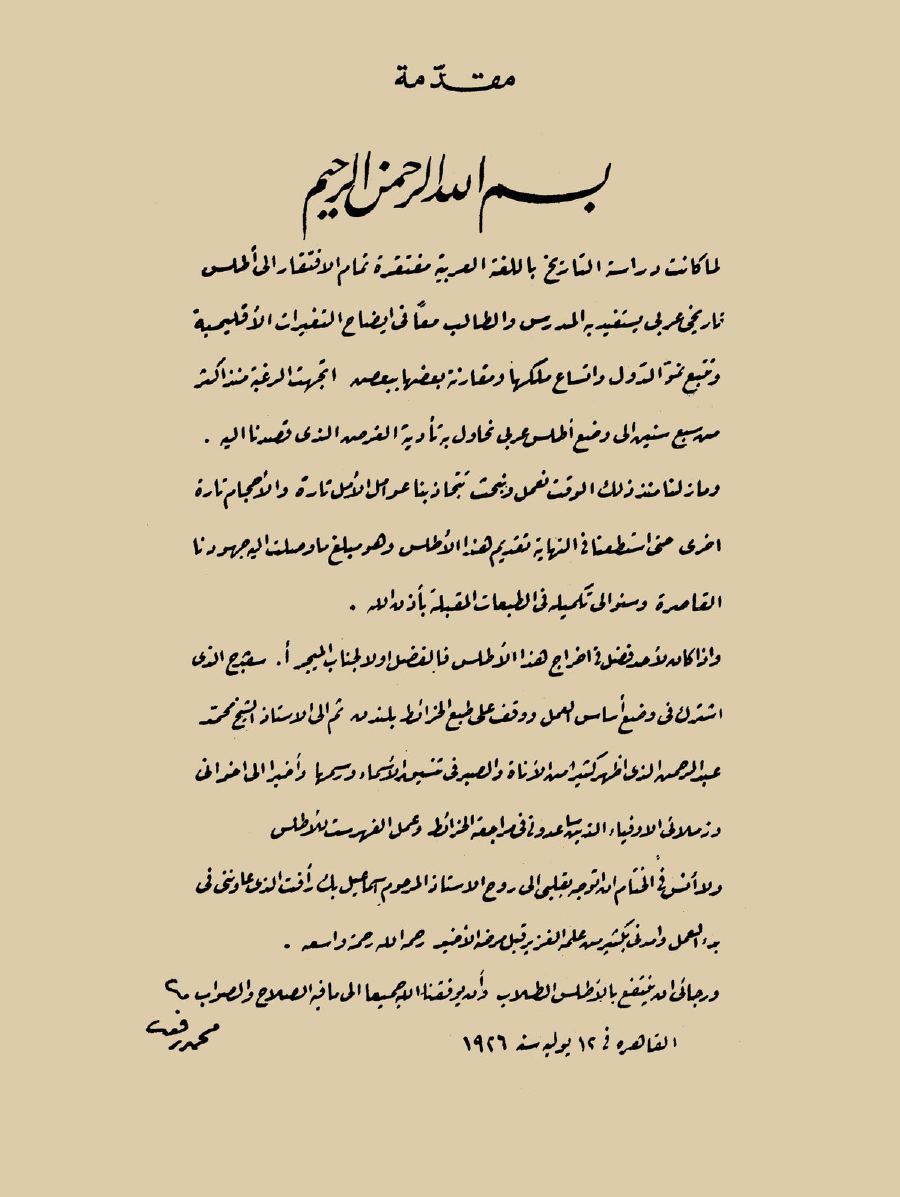 مقدّمة
بسم الله الرحمن الرحيم
لما كانت دراسة التاريخ باللغة العربية مفتقرة تمام الافتقار الى أطلس
تاريخى عربى يستفيد به المدرس والطالب معاً فى ايضاح التغيرات الأقليمية
وتتبع نموّ الدّول واتساع ملكها ومقارنة بعضها ببعض اتجهت الرغبة منذ اكثر
من سبع سنين الى وضع أطلس عربى نحاول به تأدية الغرض الذى قصدنا اليه .
وما زلنا منذ ذلك الوقت نعمل ونبحث تتجاذبنا عوامل الأمل تارة والأحجام تارة
اخرى حتى استطعنا فى النهاية تقديم هذا الأطلس وهو مبلغ ما وصلت اليه جهودنا
القاصرة وسنوالى تكميله فى الطبعات المقبلة بأذن الله .
واذا كان لأحد فضل فى اخراج هذا الأطلس فالفضل اولا لجناب الميجر أ. الذى
اشترك فى وضع أساس العمل ووقف على طبع الخرائط بلندن ثم الى الاستاذ الشيخ محمّد
عبد الرحمن الذى اظهر كثيرا من الأناة والصبر فى تنسيق الأسماء ورسمها وأخيرا الى اخوانى
وزملائى الاوفياء الذين ساعدونى فى مراجعة الخرائط وعمل الفهرست للأطلس
ولا أنسى فى الختام ان اتوجه بقلبى الى روح الاستاذ المرحوم اسماعيل بك رأفت الذى عاوننى فى
بدء العمل وامدنى بكثير من علمه الغزير قبل مرضه الأخير رحمه الله رحمة واسعه .
ورجائى ان ينتفع بالأطلس الطلاب وأن يوفقنا الله جميعا الى ما فيه الصلاح والصواب
القاهره فى ١٢ يوليه سنه ١٩٢٦
محمد رفعت